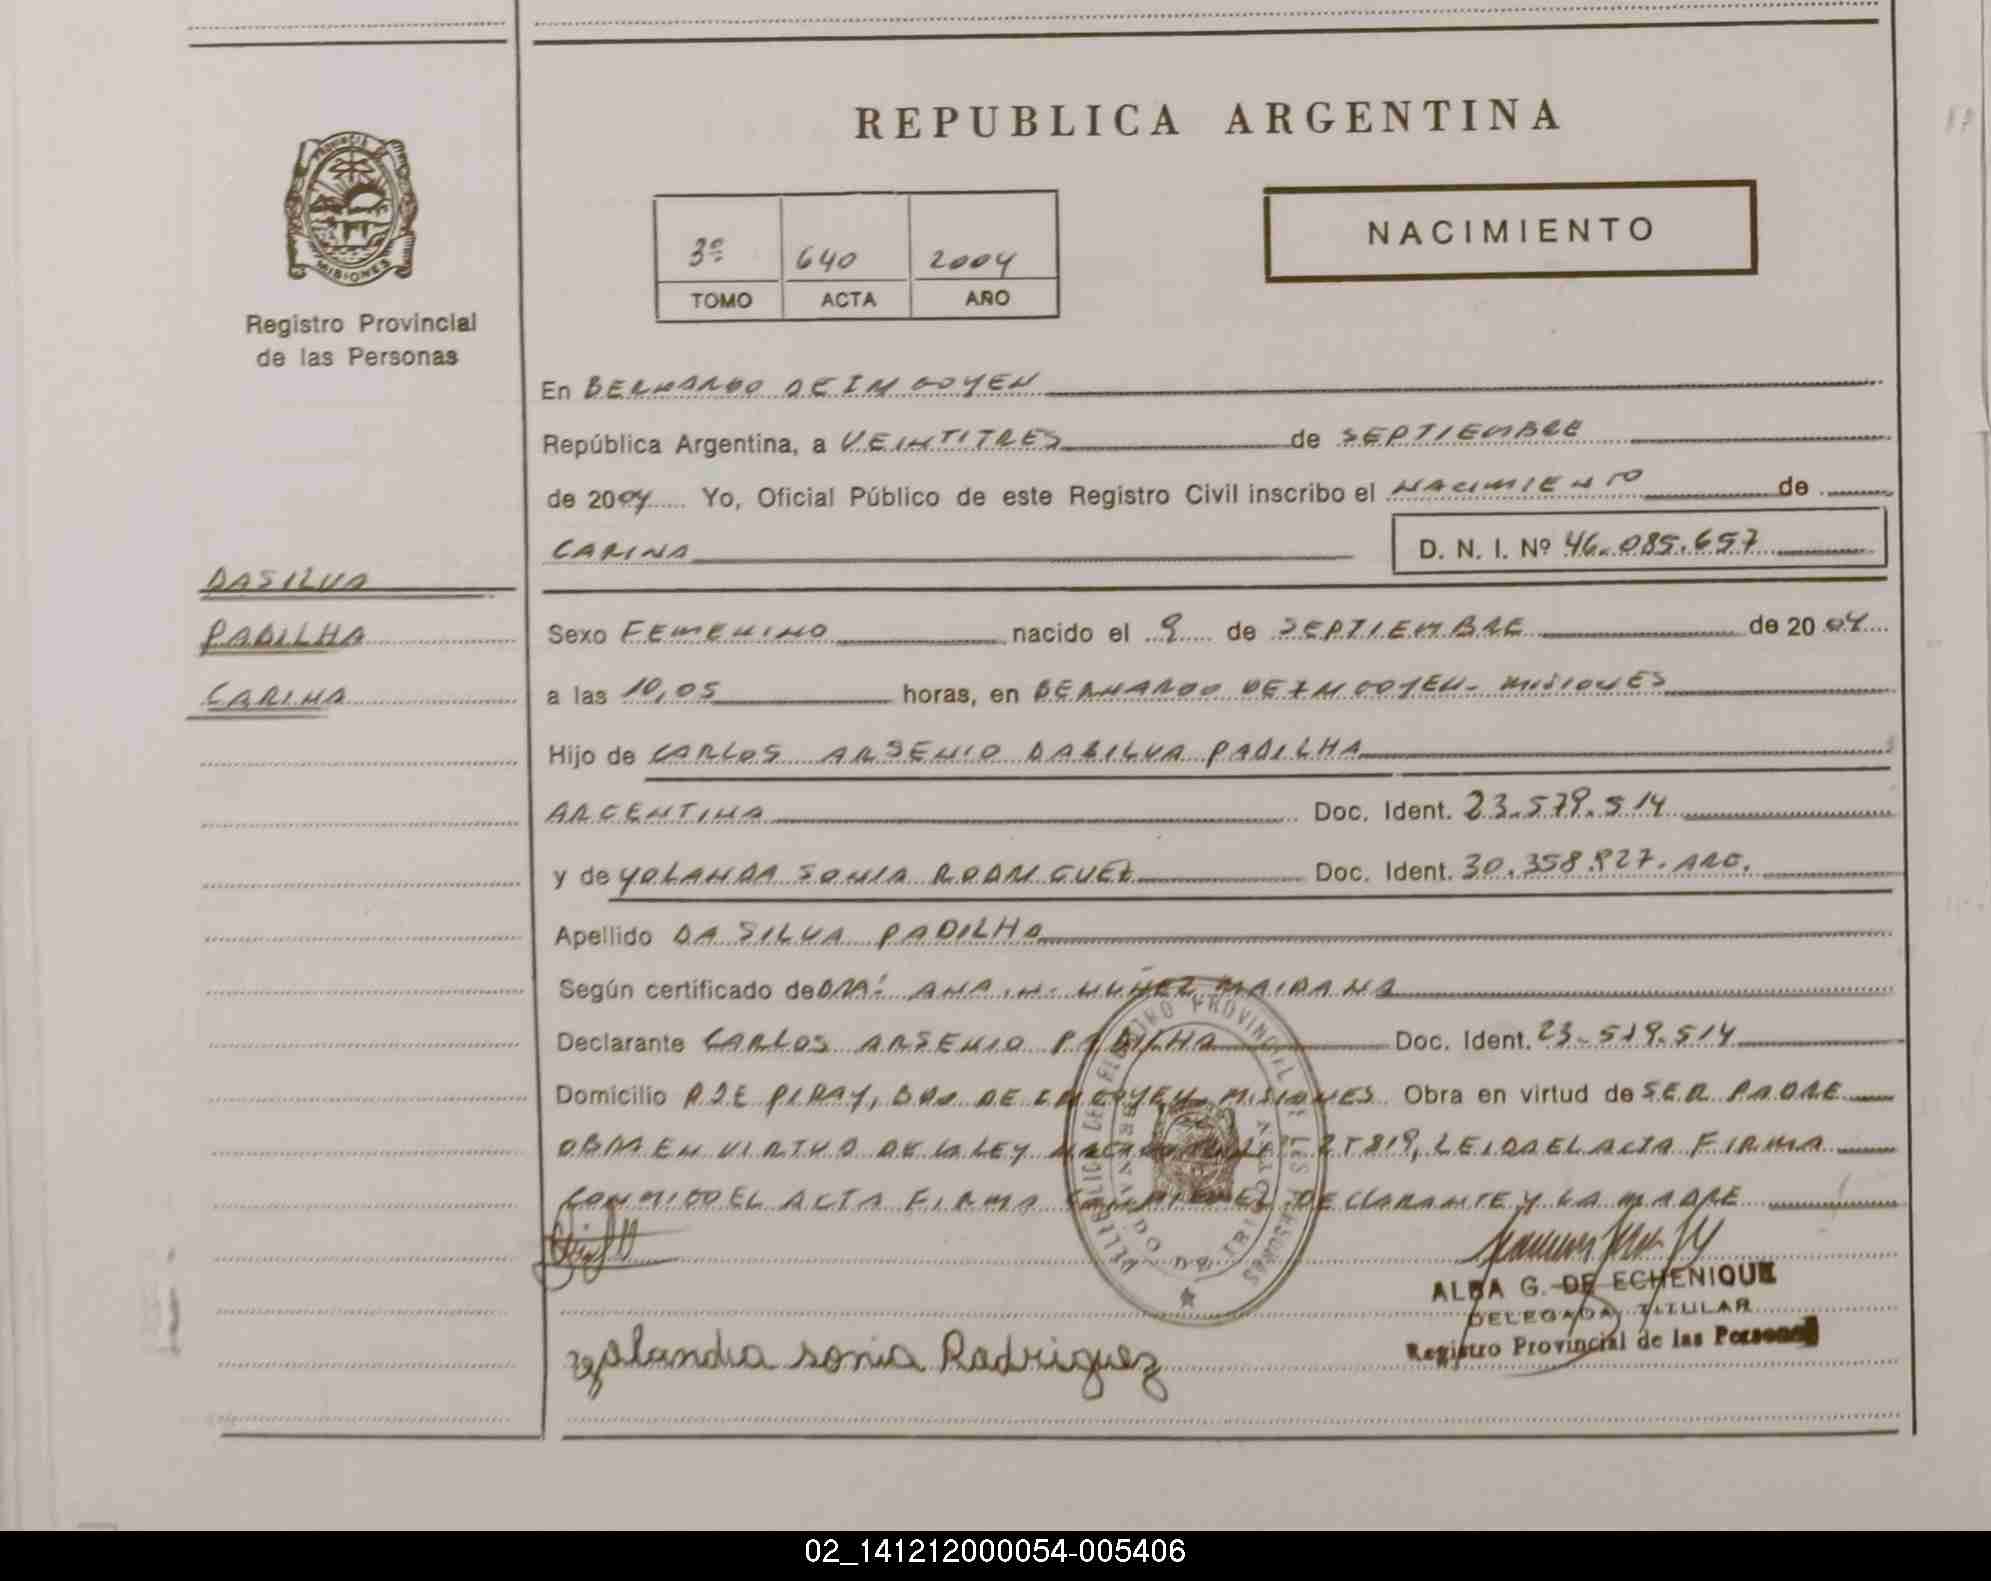 REPUBLICA ARGENTINA
PROVINCIA DE
MISIONES
Registro Provincial
de las Personas
3º 640 2004
TOMO ACTA AÑO
NACIMIENTO
En BERNARDO DE IRIGOYEN
República Argentina, a VEINTITRES de SEPTIEMBRE
de 2004 Yo, Oficial Público de este Registro Civil inscribo el NACIMIENTO de
CARINA D. N. I. Nº 46.085.657
DASILVA
PADILHA
CARINA
Sexo FEMENINO nacido el 9 de SEPTIEMBRE de 2004
a las 10,05 horas, en BERNARDO DE IRIGOYEN- MISIONES
Hijo de CARLOS ARSENIO DASILVA PADILHA
ARGENTINA Doc. Ident. 23.579.514
y de YOLANDA SONIA RODRIGUEZ Doc. Ident. 30.358.827. ARG.
Apellido DA SILVA PADILHA
Según certificado de DRA: ANA NUÑEZ MAIDANA
Declarante CARLOS ARSENIO PADILHA Doc. Ident. 23.519.514
Domicilio PJE PIRAY, BDO DE IRIGOYEN MISIONES. Obra en virtud de SER PADRE
OBRA EN VIRTUD DE LA LEY LEIDA EL ACTA FIRMA
CONMIGO EL ACTA FIRMA DECLARANTE Y LA MADRE
ALBA G. DE ECHENIQUE
DELEGADA TITULAR
Registro Provincial de las Personas
yolandia sonia Rodriguez
02_141212000054-005406